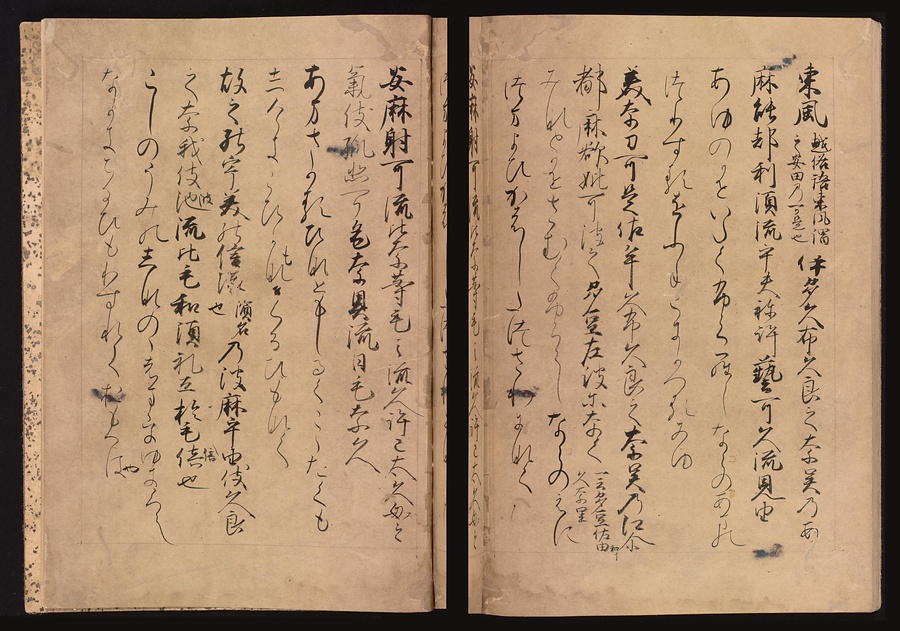 東風 越俗語東風謂之安由乃可是也 伊多久布久良之奈呉乃安
麻能都利須流乎夫祢許藝可久流見由
あゆのかせいたくふくらしなこのあまの
つりするをふねこきかくるみゆ
美奈刀可是佐牟久布久良之奈呉乃江尓
都麻欲妣可波之多豆左波尓奈久 一云多豆佐和久奈里
みなとかせさむくふくらしなこのえに
つまよひかはしたつさはになく
安麻射可流比奈等毛之流久許己太久母之
氣伎孤悲可毛奈具流日毛奈久
あまさかるひなともしるくここたくも
故之能宇美能信濃 濱名也 乃波麻乎由伎久良
之奈我伎波流比毛和須礼弖於毛倍也
こしのうみのしなののはまをゆきくらし
なかきはるひもわすれておもへや